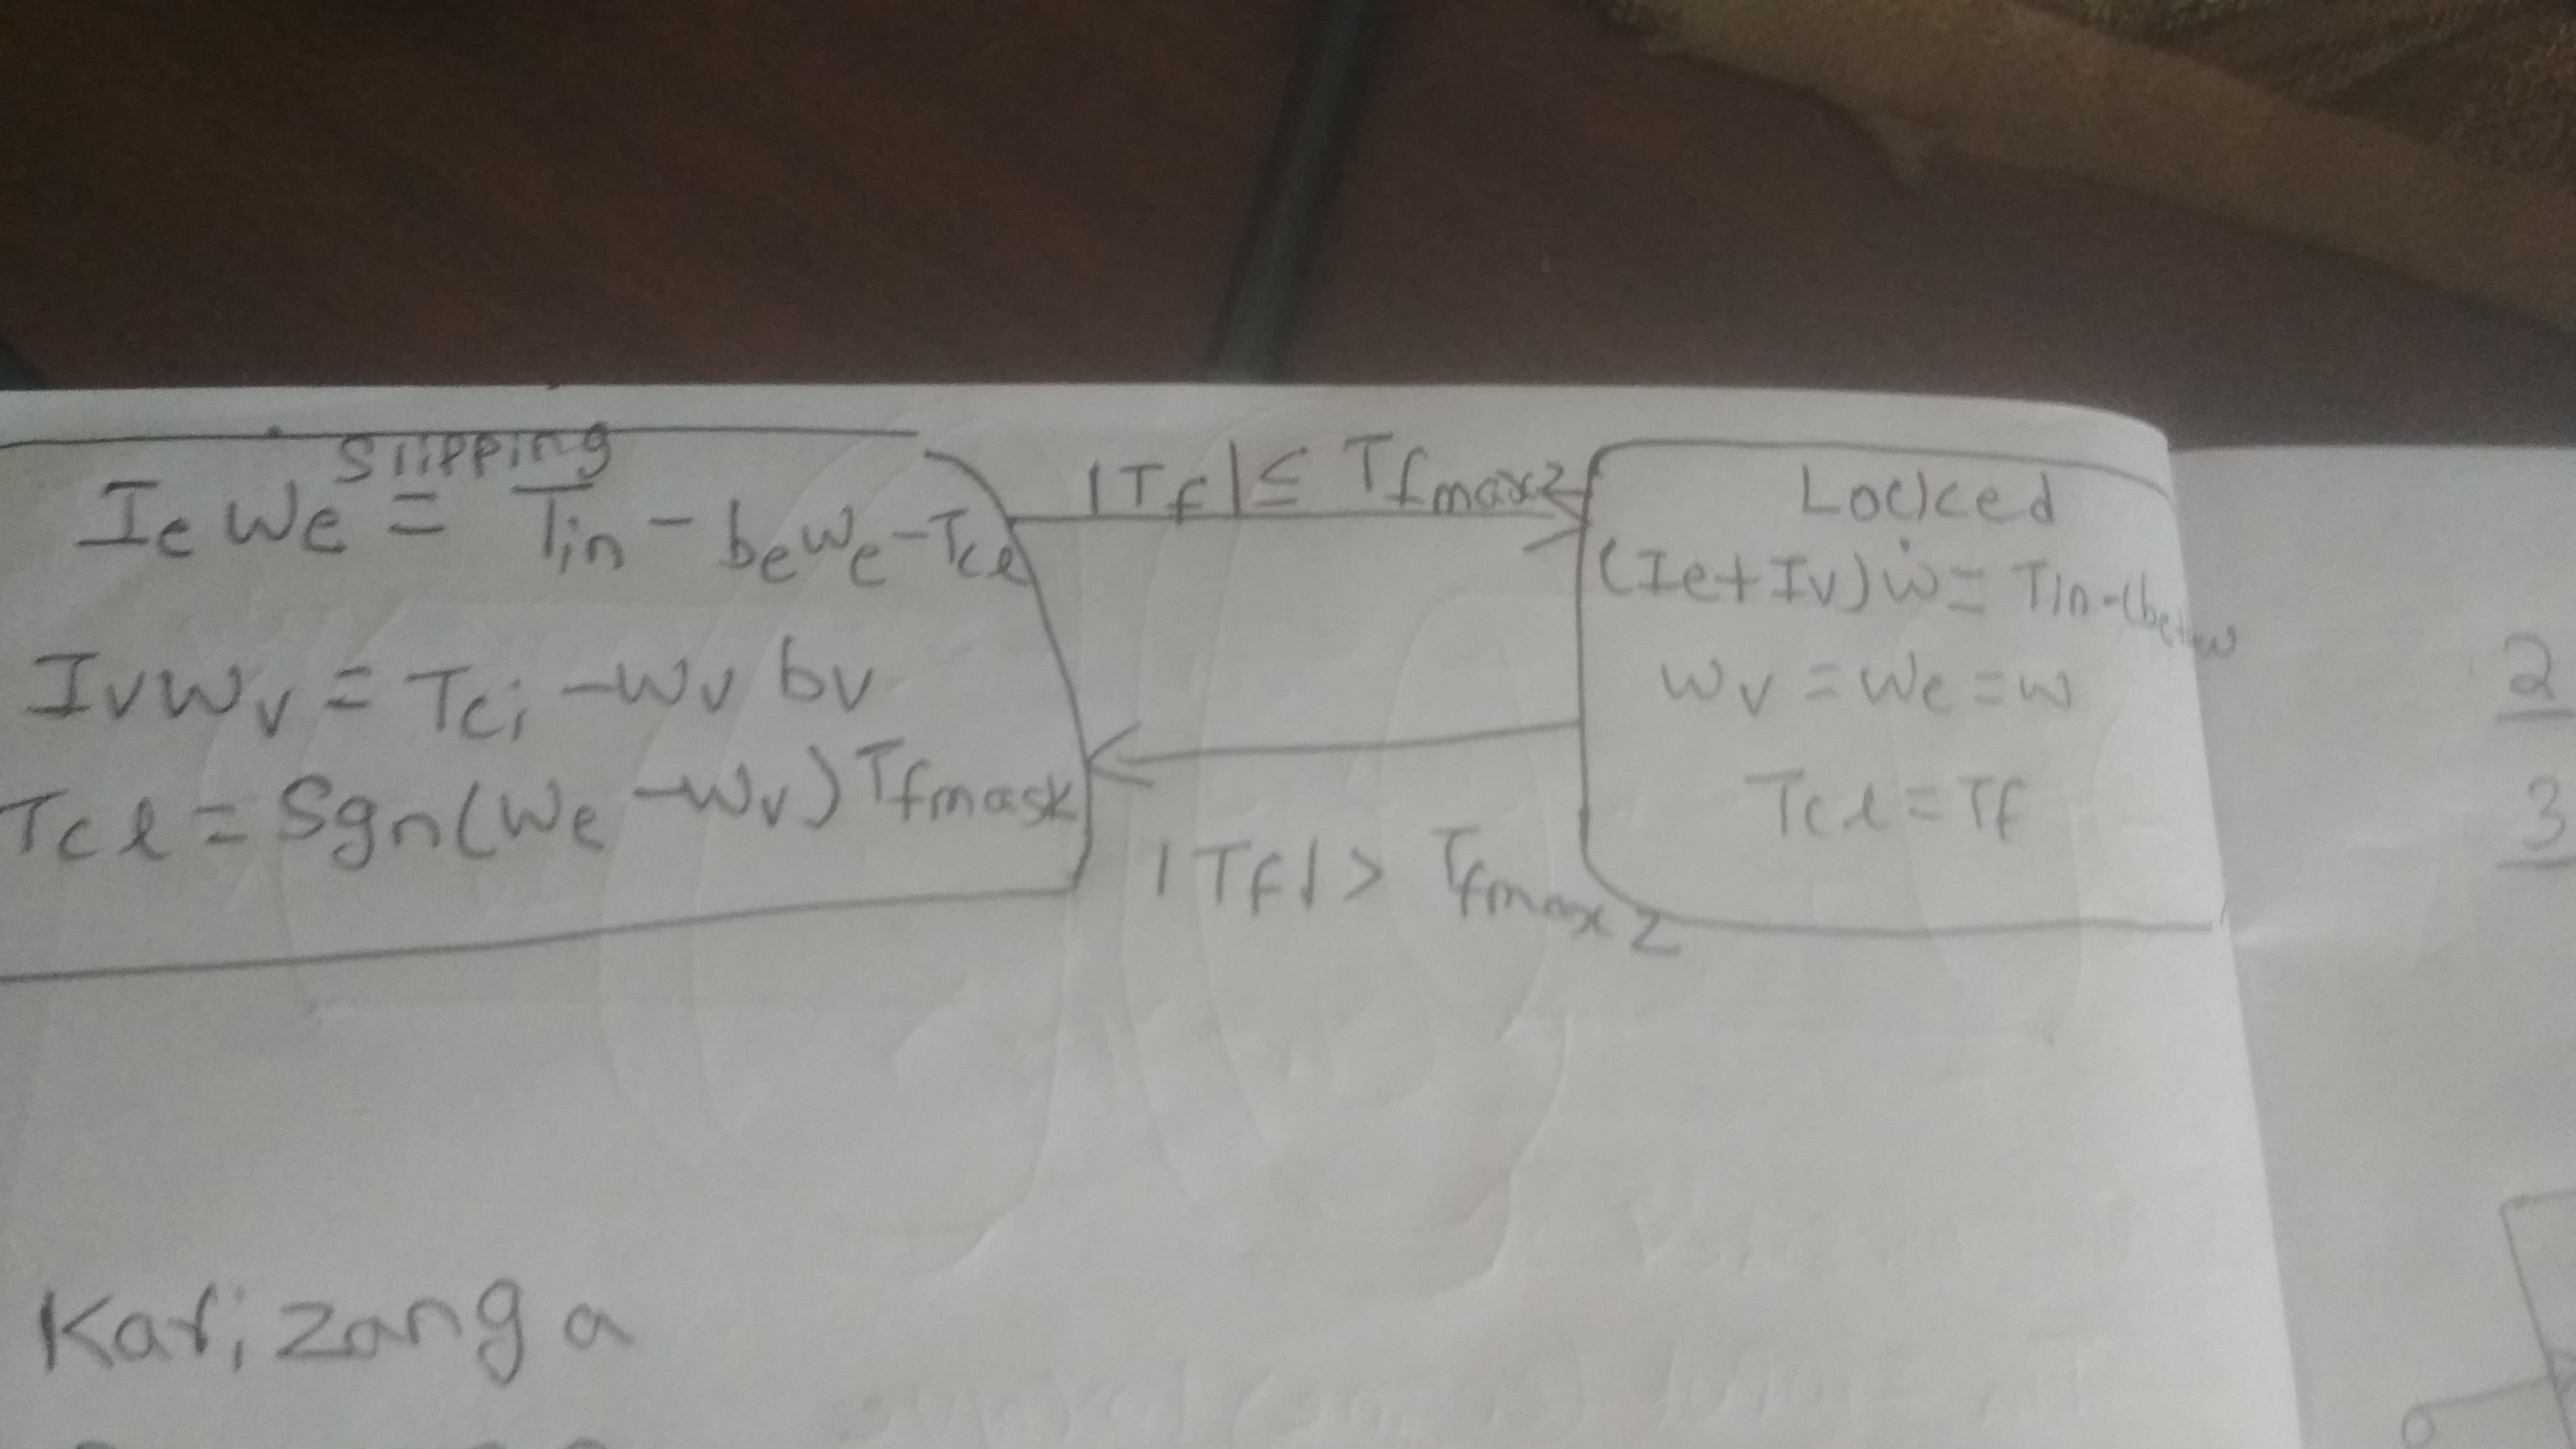 Slipping
Ie We = Tin - be We - Tcl
Iv Wv = Tci - Wv bv
Tcl = Sgn(We - Wv) Tfmask
|Tf| ≤ Tfmax2
|Tf| > Tfmax2
Locked
(Ie + Iv)ẇ = Tin - (be+
Wv = We = w
Tcl = Tf
2
3
Karizanga